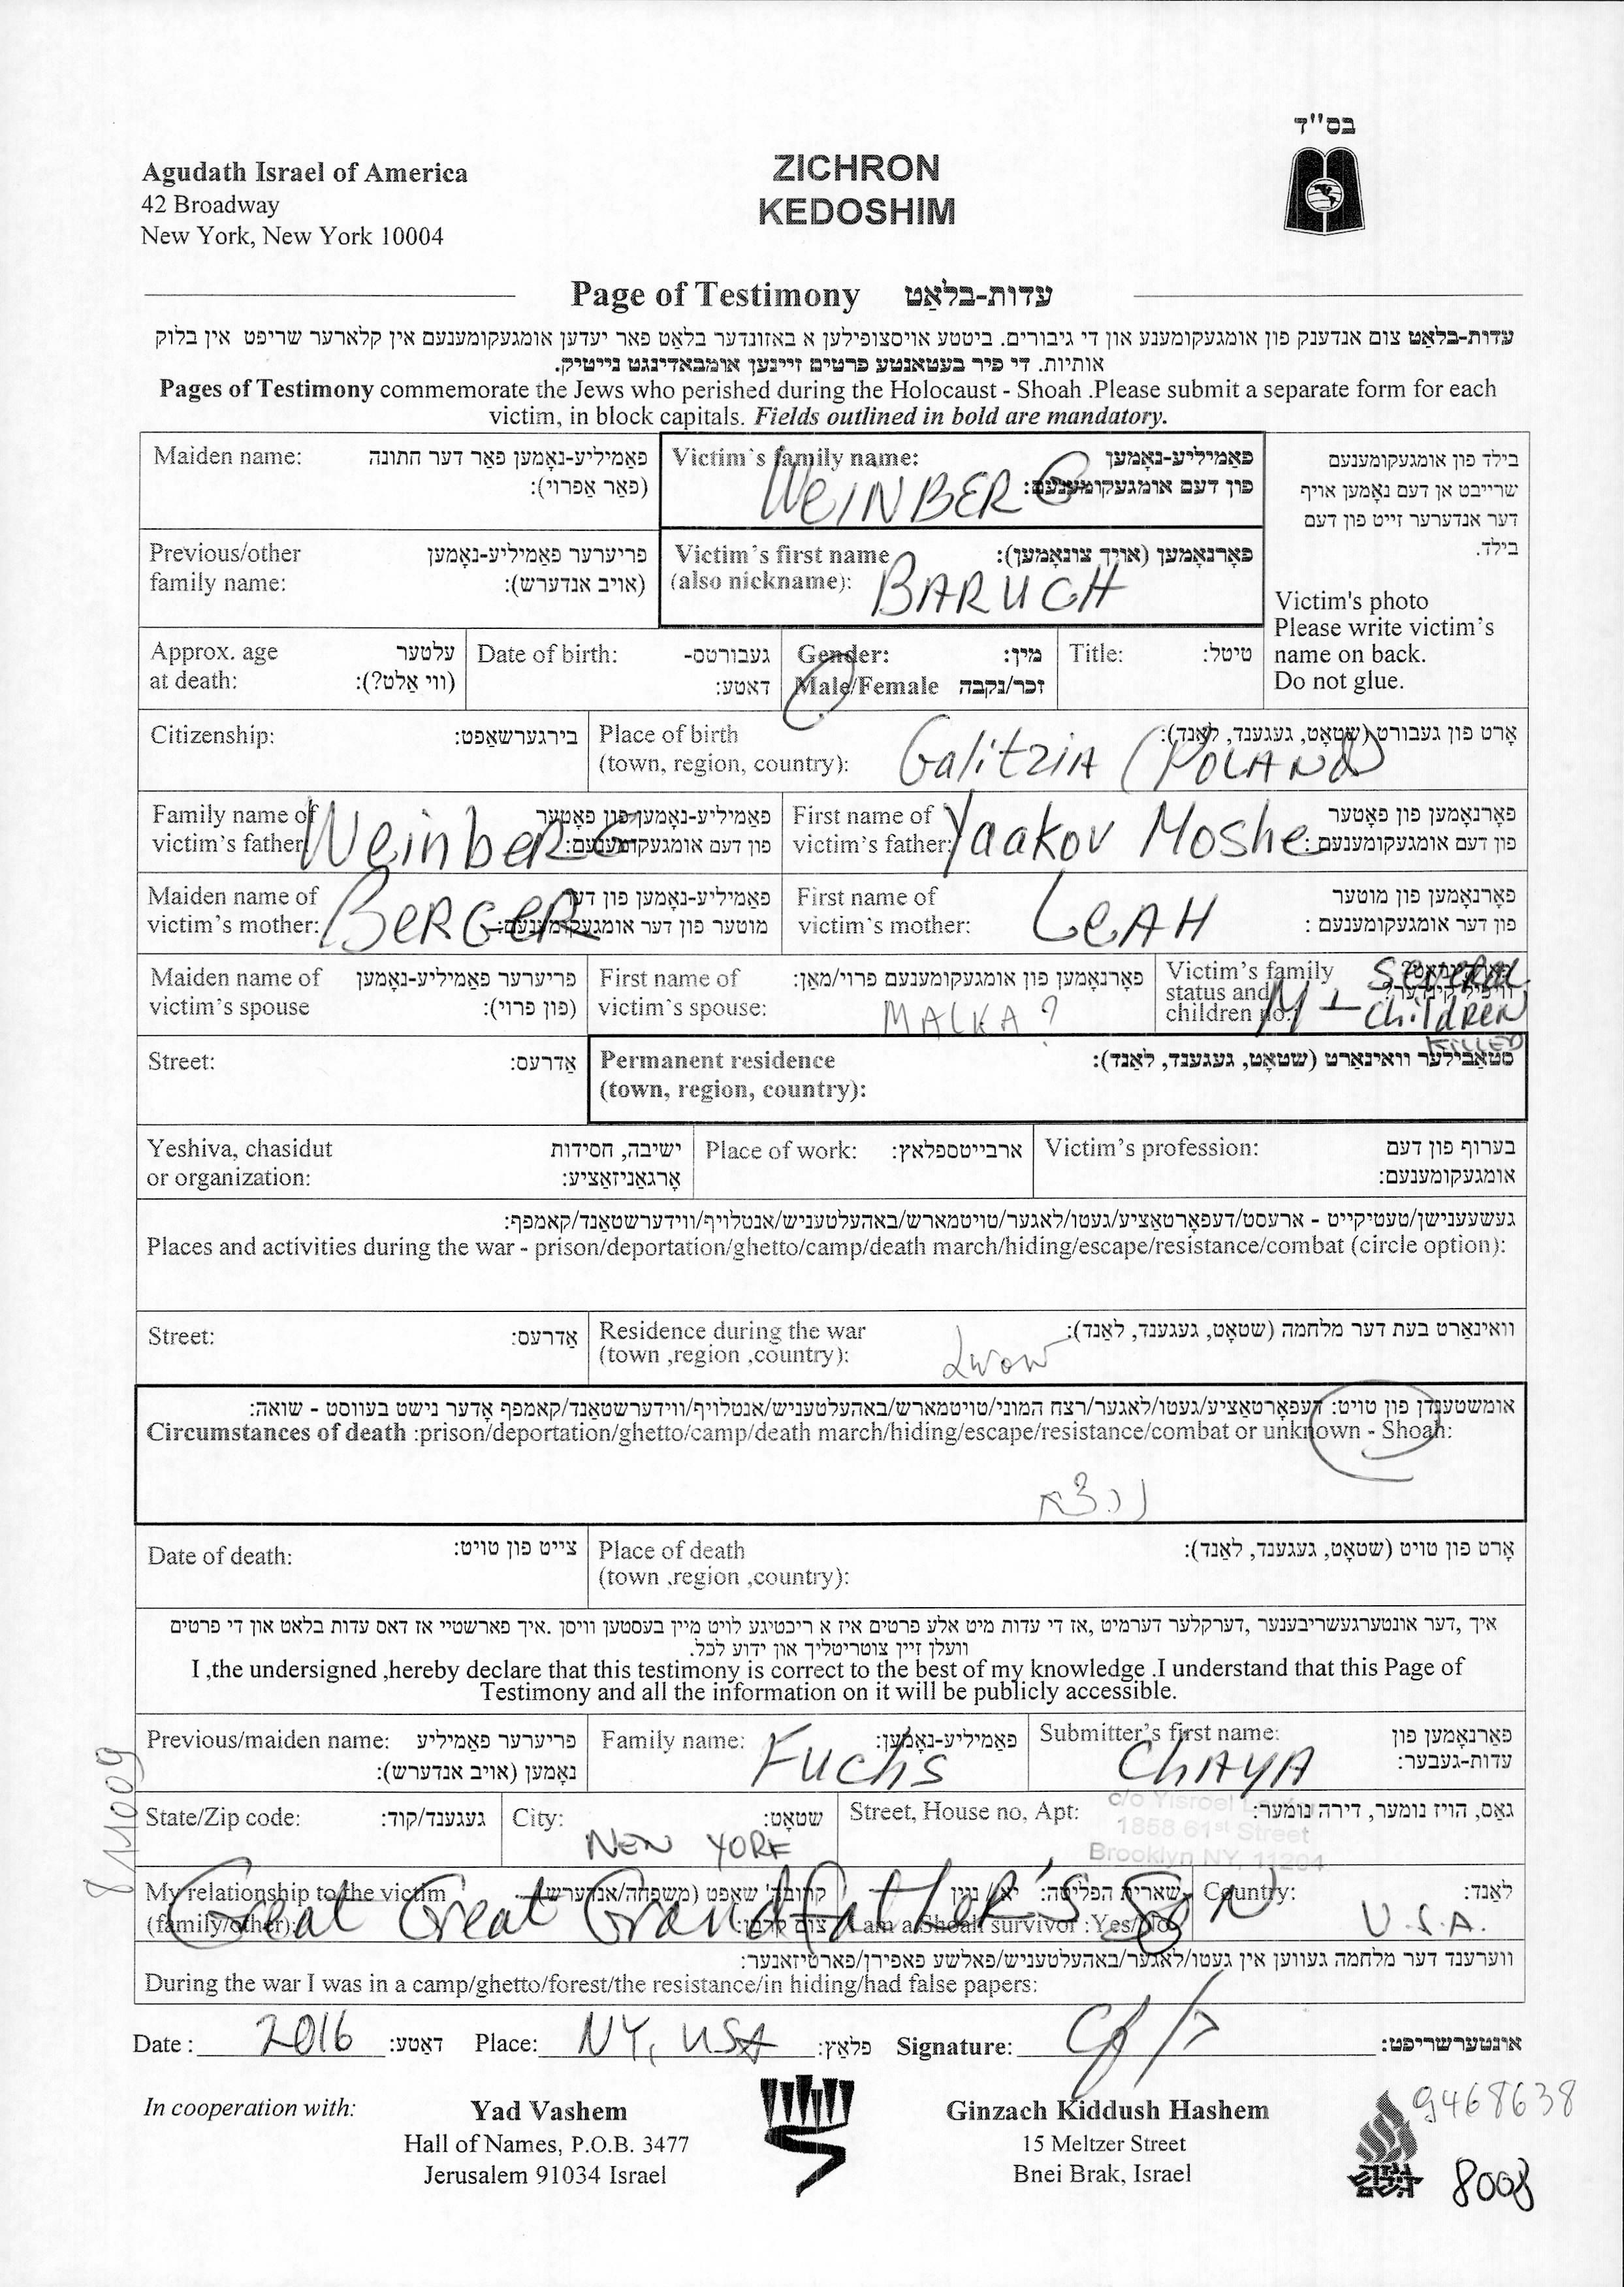 בס"ד
Agudath Israel of America
42 Broadway
New York, New York 10004
ZICHRON
KEDOSHIM
Page of Testimony עדות-בלאַט
עדות-בלאַט צום אנדענק פון אומגעקומענע און די גיבורים. ביטטע אויסצופילען א באזונדער בלאַט פאר יעדען אומגעקומענעם אין קלארער שריפט אין בלוק
אותיות. די פיר בעטאנטע פרטים זיינען אומבאדינגט נייטיק.
Pages of Testimony commemorate the Jews who perished during the Holocaust - Shoah .Please submit a separate form for each
victim, in block capitals. Fields outlined in bold are mandatory.
Maiden name: פאַמיליע-נאָמען פאַר דער חתונה
(פאַר אַפרוי):
Victim's family name: פאַמיליע-נאָמען
פון דעם אומגעקומענעם:
WEINBERG
Previous/other פריערער פאַמיליע-נאָמען
family name: (אויב אנדערש):
Victim's first name פאָרנאָמען (אויך צונאָמען):
(also nickname): BARUCH
בילד פון אומגעקומענעם
שרייבט אן דעם נאָמען אויף
דער אנדערער זייט פון דעם
בילד.
Victim's photo
Please write victim's
name on back.
Do not glue.
Approx. age עלטער
at death: (ווי אַלט?):
Date of birth: געבורטס-
דאטע:
Gender: מין:
Male/Female זכר/נקבה
Title: טיטל:
Citizenship: בירגערשאַפט:
Place of birth אָרט פון געבורט (שטאָט, געגענד, לאַנד):
(town, region, country): Galitzia (POLAND)
Family name of פאַמיליע-נאָמען פון פאָטער
victim's father: פון דעם אומגעקומענעם:
Weinberg
First name of פאָרנאָמען פון פאָטער
victim's father: Yaakov Moshe פון דעם אומגעקומענעם:
Maiden name of פאַמיליע-נאָמען פון דער
victim's mother: BERGER מוטער פון דער אומגעקומענעם:
First name of פאָרנאָמען פון מוטער
victim's mother: LEAH פון דער אומגעקומענעם :
Maiden name of פריערער פאַמיליע-נאָמען
victim's spouse (פון פרוי):
First name of פאָרנאָמען פון אומגעקומענעם פרוי/מאַן:
victim's spouse: MALKA ?
Victim's family
status and
children no.: M + Several
Children
KILLED
Street: אַדרעס:
Permanent residence סטאַבילער וואוינאָרט (שטאָט, געגענד, לאַנד):
(town, region, country):
Yeshiva, chasidut ישיבה, חסידות
or organization: אָרגאַניזאַציע:
Place of work: ארבייטספלאץ:
Victim's profession: בערוף פון דעם
אומגעקומענעם:
געשעענישן/טעטיקייט - ארעסט/דעפאָרטאַציע/געטו/לאגער/טויטמארש/באהעלטעניש/אנטלויף/ווידערשטאַנד/קאמפף:
Places and activities during the war - prison/deportation/ghetto/camp/death march/hiding/escape/resistance/combat (circle option):
Street: אַדרעס:
Residence during the war וואוינאָרט בעת דער מלחמה (שטאָט, געגענד, לאַנד):
(town ,region ,country): Lwow
אומשטענדן פון טויט: דעפאָרטאַציע/געטו/לאגער/רצח המוני/טויטמארש/באהעלטעניש/אנטלויף/ווידערשטאַנד/קאמפף אָדער נישט בעוואוסט - שואה:
Circumstances of death :prison/deportation/ghetto/camp/death march/hiding/escape/resistance/combat or unknown - Shoah:
נרצח
Date of death: צייט פון טויט:
Place of death אָרט פון טויט (שטאָט, געגענד, לאַנד):
(town ,region ,country):
איך ,דער אונטערגעשריבענער ,דערקלער דערמיט ,אז די עדות מיט אלע פרטים איז א ריכטיגע לויט מיין בעסטען וויסן .איך פארשטיי אז דאס עדות בלאט און די פרטים
וועלן זיין צוטריטליך און ידוע לכל.
I ,the undersigned ,hereby declare that this testimony is correct to the best of my knowledge .I understand that this Page of
Testimony and all the information on it will be publicly accessible.
Previous/maiden name: פריערער פאַמיליע
נאָמען (אויב אנדערש):
Family name: פאַמיליע-נאָמען:
Fuchs
Submitter's first name: פאַרנאָמען פון
עדות-געבער:
CHAYA
State/Zip code: געגענד/קוד:
City: שטאָט:
NEW YORK
Street, House no, Apt: גאַס, הויז נומער, דירה נומער:
c/o Yisroel
1858 61st Street
Brooklyn NY, 11204
My relationship to the victim
(family/other):
Great Great Grandfather's Son
שארית הפליטה:
I am a Shoah survivor :Yes/No
Country: לאַנד:
U.S.A.
ווערענד דער מלחמה געווען אין געטו/לאַגער/באהעלטעניש/פאלשע פאפירן/פארטיזאנער:
During the war I was in a camp/ghetto/forest/the resistance/in hiding/had false papers:
Date : 2016 דאַטע: Place: NY, USA פלאַץ: Signature: אונטערשריפט:
In cooperation with:
Yad Vashem
Hall of Names, P.O.B. 3477
Jerusalem 91034 Israel
Ginzach Kiddush Hashem
15 Meltzer Street
Bnei Brak, Israel
9468638
8008
811009